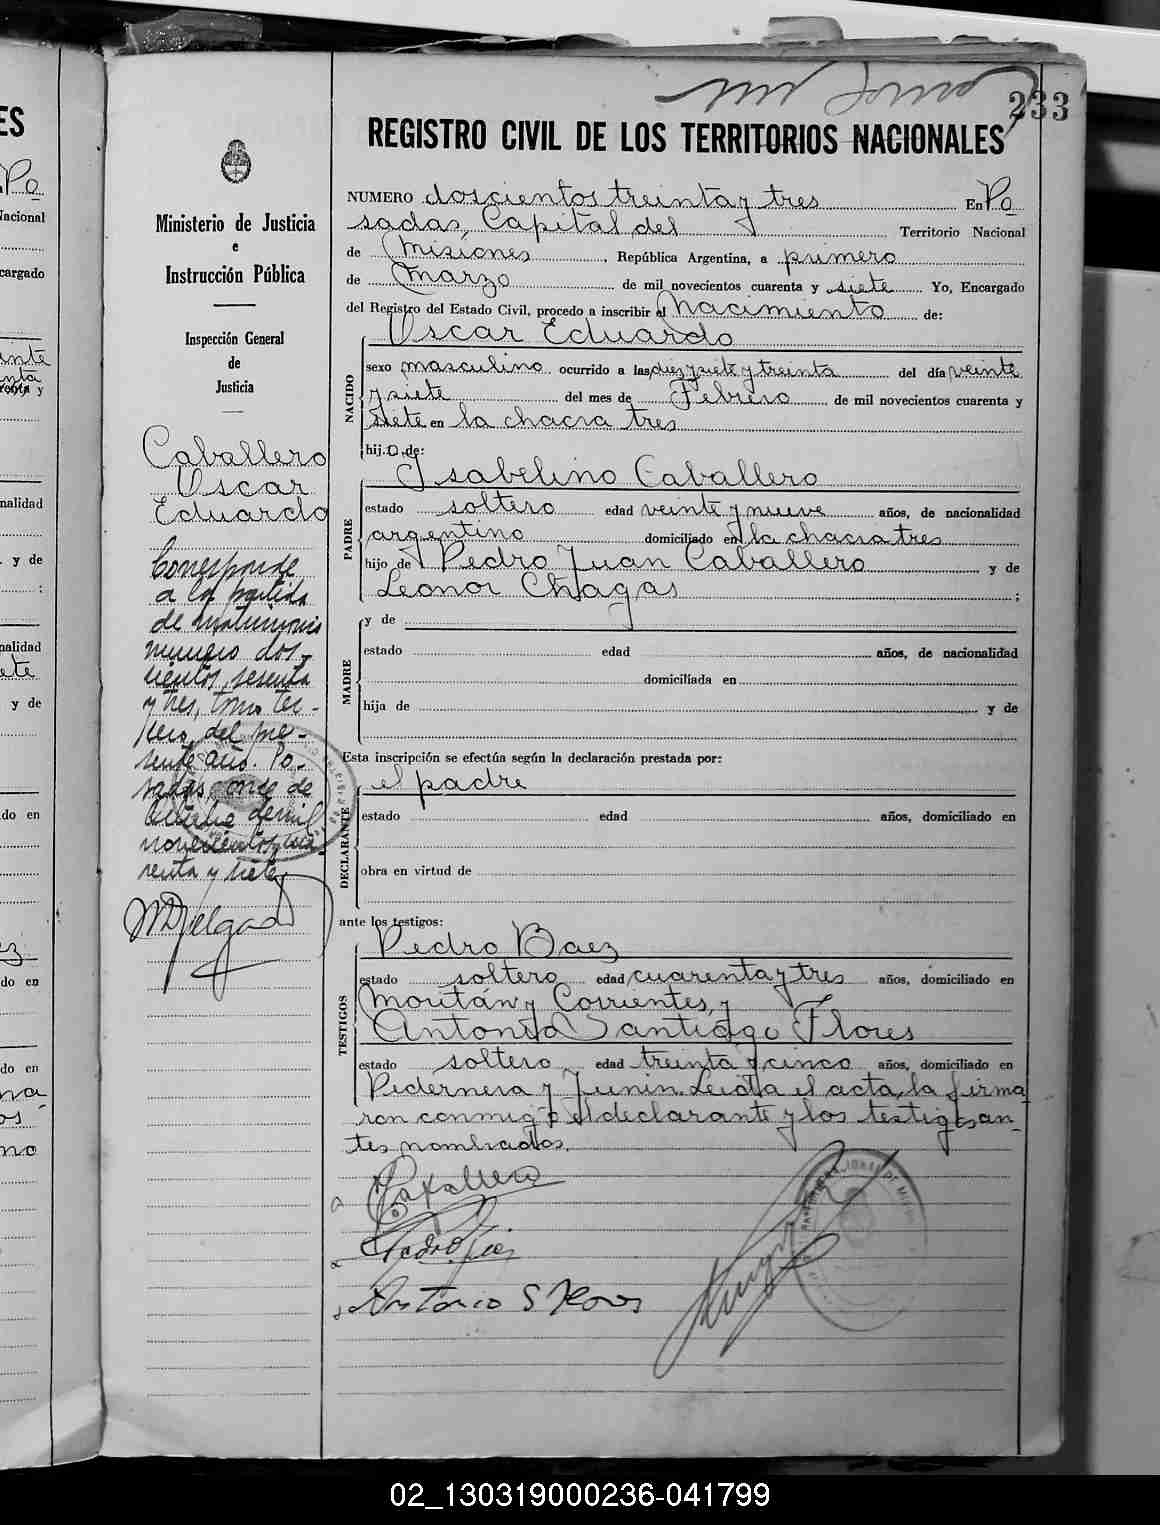 233
REGISTRO CIVIL DE LOS TERRITORIOS NACIONALES
Ministerio de Justicia
e
Instrucción Pública
Inspección General
de
Justicia
Caballero
Oscar
Eduardo
Corresponde
a la partida
de matrimonio
numero dos-
cientos sesenta
y tres, tomo ter-
cero del pre-
sente año. Po-
sadas, once de
de mil
novecientos cua
renta y siete
NUMERO doscientos treinta y tres En Po
sadas, Capital del Territorio Nacional
de Misiones, República Argentina, a primero
de Marzo de mil novecientos cuarenta y siete Yo, Encargado
del Registro del Estado Civil, procedo a inscribir el Nacimiento de:
NACIDO
Oscar Eduardo
sexo masculino ocurrido a las diez y siete y treinta del día veinte
y siete del mes de Febrero de mil novecientos cuarenta y
siete en la chacra tres
hijo de:
PADRE
Isabelino Caballero
estado soltero edad veinte y nueve años, de nacionalidad
argentino domiciliado en la chacra tres
hijo de Pedro Juan Caballero y de
Leonor Chagas ;
MADRE
y de
estado edad años, de nacionalidad
domiciliada en
hija de y de
Esta inscripción se efectúa según la declaración prestada por:
DECLARANTE
el padre
estado edad años, domiciliado en
obra en virtud de
ante los testigos:
TESTIGOS
Pedro Baez
estado soltero edad cuarenta y tres años, domiciliado en
Moritán y Corrientes, y
Antonio Santiago Flores
estado soltero edad treinta y cinco años, domiciliado en
Pedernera y Junin. Leida el acta, la firma
ron conmigo el declarante y los testigos an_
tes nombrados.
Caballero
Pedro Baez
Antonio S Flores
02_130319000236-041799